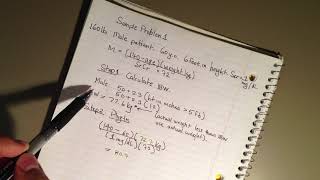 Sample Problem 1
160lb Male patient. 60 y.o. 6 feet in height. Scr=
M = (140-age)(weight kg)
Scr × 72
Step 1 Calculate IBW.
Male: 50+2.3 (ht in inches > 5ft)
50+2.3 (12)
= 77.6 kg
(actual weight less than
use actual weight).
Step 2
(140-60)(72.7 kg)
(1 mg/dL)(72)
= 80.7